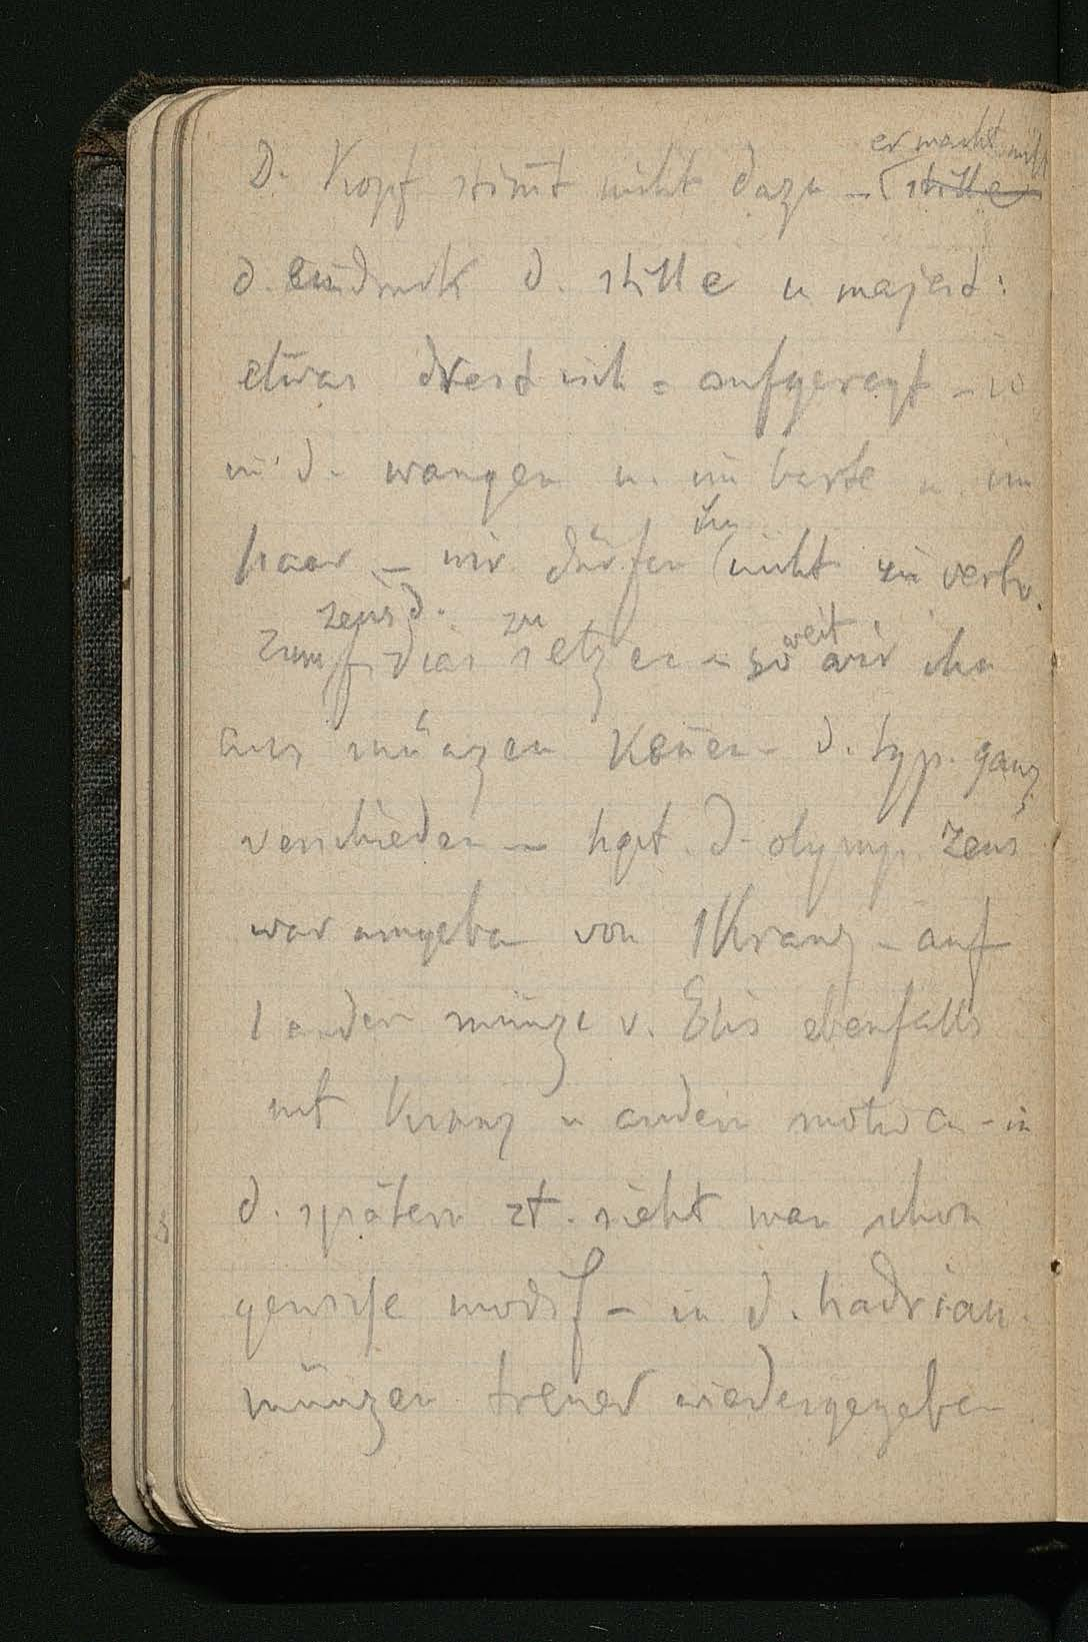 er macht nicht
D. Kopf stim̄t nicht dazu – stille
d. eindruck d. stille u majest:
etwas
aufgeregt –
in d. wangen u. im barte u. im
haar – wir dürfen ihn nicht zu verhr.
zeus d. zu
zum fidias setzen – so weit wir ihn
aus münzen kenn̄en – d. typ. ganz
verschieden – hpt. d. olymp. Zeus
war umgeben von 1 Kranz – auf
1 andern münze v. Elis ebenfalls
mit Kranz u andern motiven – in
d. spätern zt. sieht man schon
gewisse modif – in d. hadrian.
münzen treuer wiedergegeben